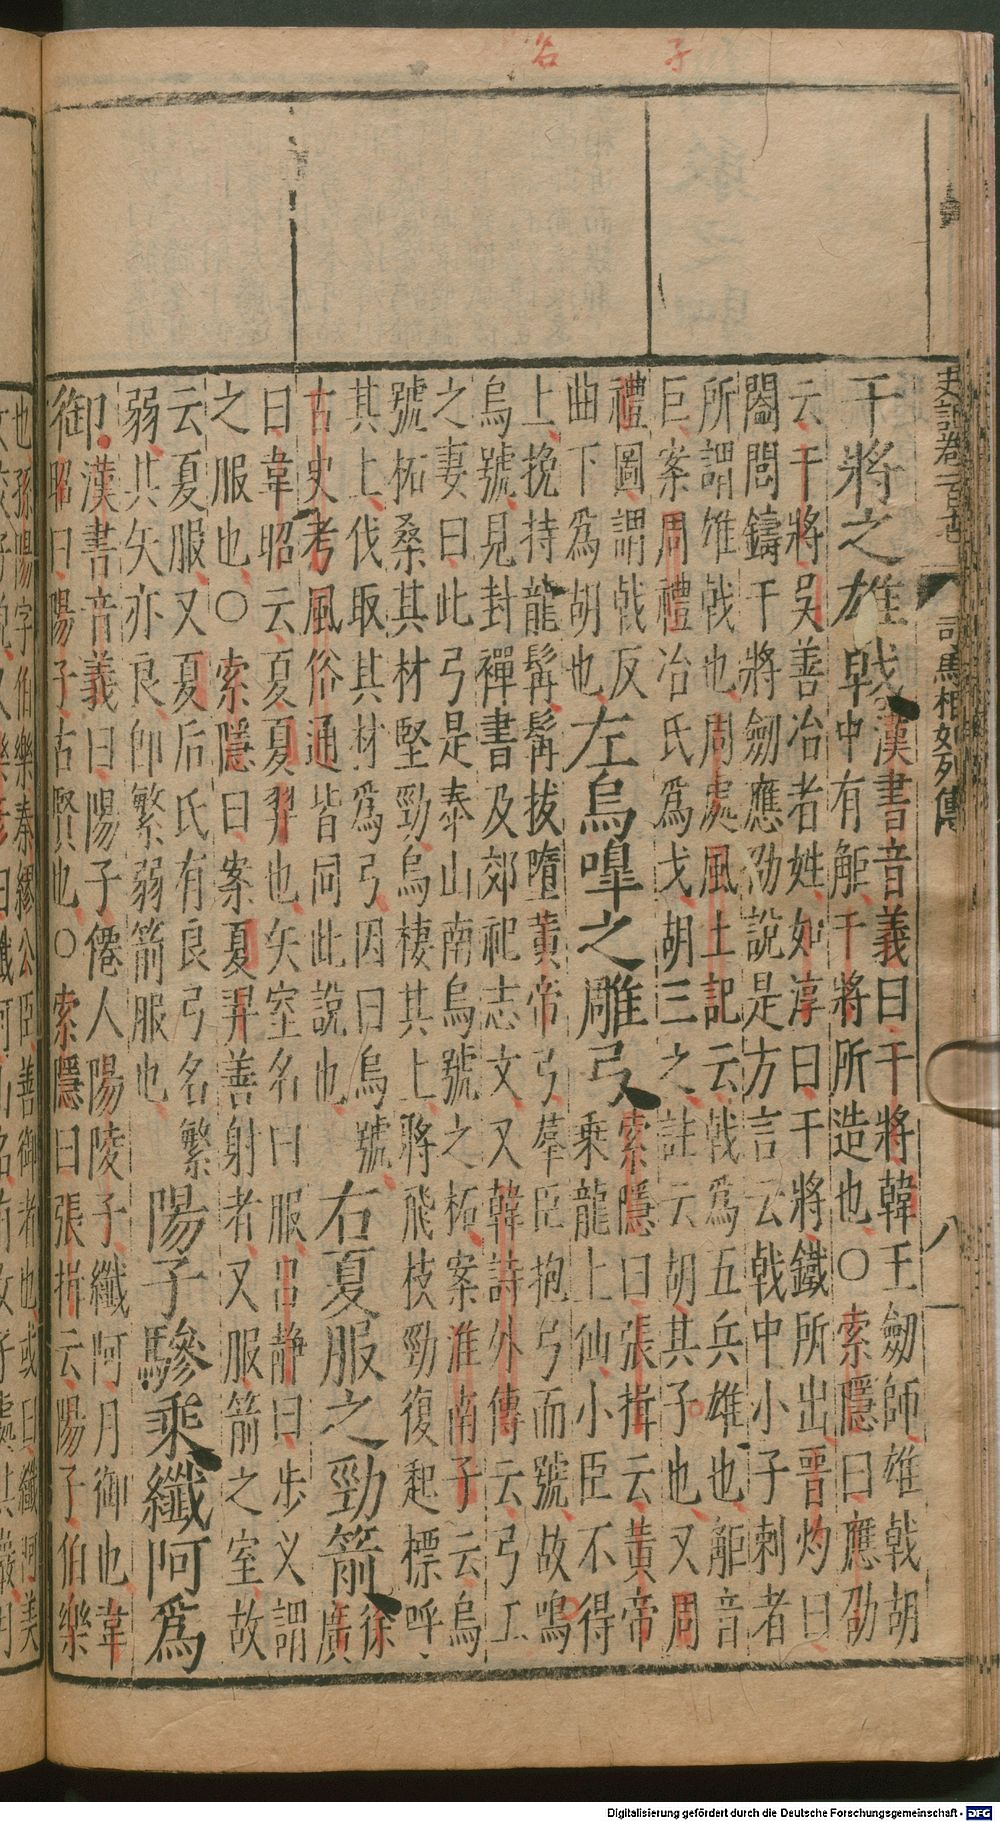 子
名
史記卷一百十七 司馬相如列傳 八
干將之雄戟
漢書音義曰干將韓王劒師雄戟胡
中有䱟干將所造也○索隱曰應劭
云干將吳善冶者姓如淳曰干將鐵所出晉灼曰
闔閭鑄干將劒應劭說是方言云戟中小子刺者
所謂雄戟也周處風土記云戟為五兵雄也䱟音
巨案周禮冶氏為戈胡三之註云胡其子也又周
禮圖謂戟反
曲下為胡也
左烏嘷之雕弓
索隱曰張揖云黃帝
乘龍上仙小臣不得
上挽持龍髯髯拔墮黃帝弓羣臣抱弓而號故鳴
烏號見封禪書及郊祀志文又韓詩外傳云弓工
之妻曰此弓是泰山南烏號之柘案淮南子云烏
號柘桑其材堅勁烏棲其上將飛枝勁復起摽呼
其上伐取其材為弓因曰烏號
古史考風俗通皆同此說也
右夏服之勁箭
徐
廣
曰韋昭云夏夏羿也矢室名曰服呂静曰步义謂
之服也○索隱曰案夏羿善射者又服箭之室故
云夏服又夏后氏有良弓名繁
弱其矢亦良即繁弱箭服也
陽子驂乘纖阿為
御
漢書音義曰陽子僊人陽陵子纖阿月御也韋
昭曰陽子古賢也○索隱曰張揖云陽子伯樂
也孫陽字伯樂秦繆公臣善御者也或曰纖阿美
Digitalisierung gefördert durch die Deutsche Forschungsgemeinschaft - DFG